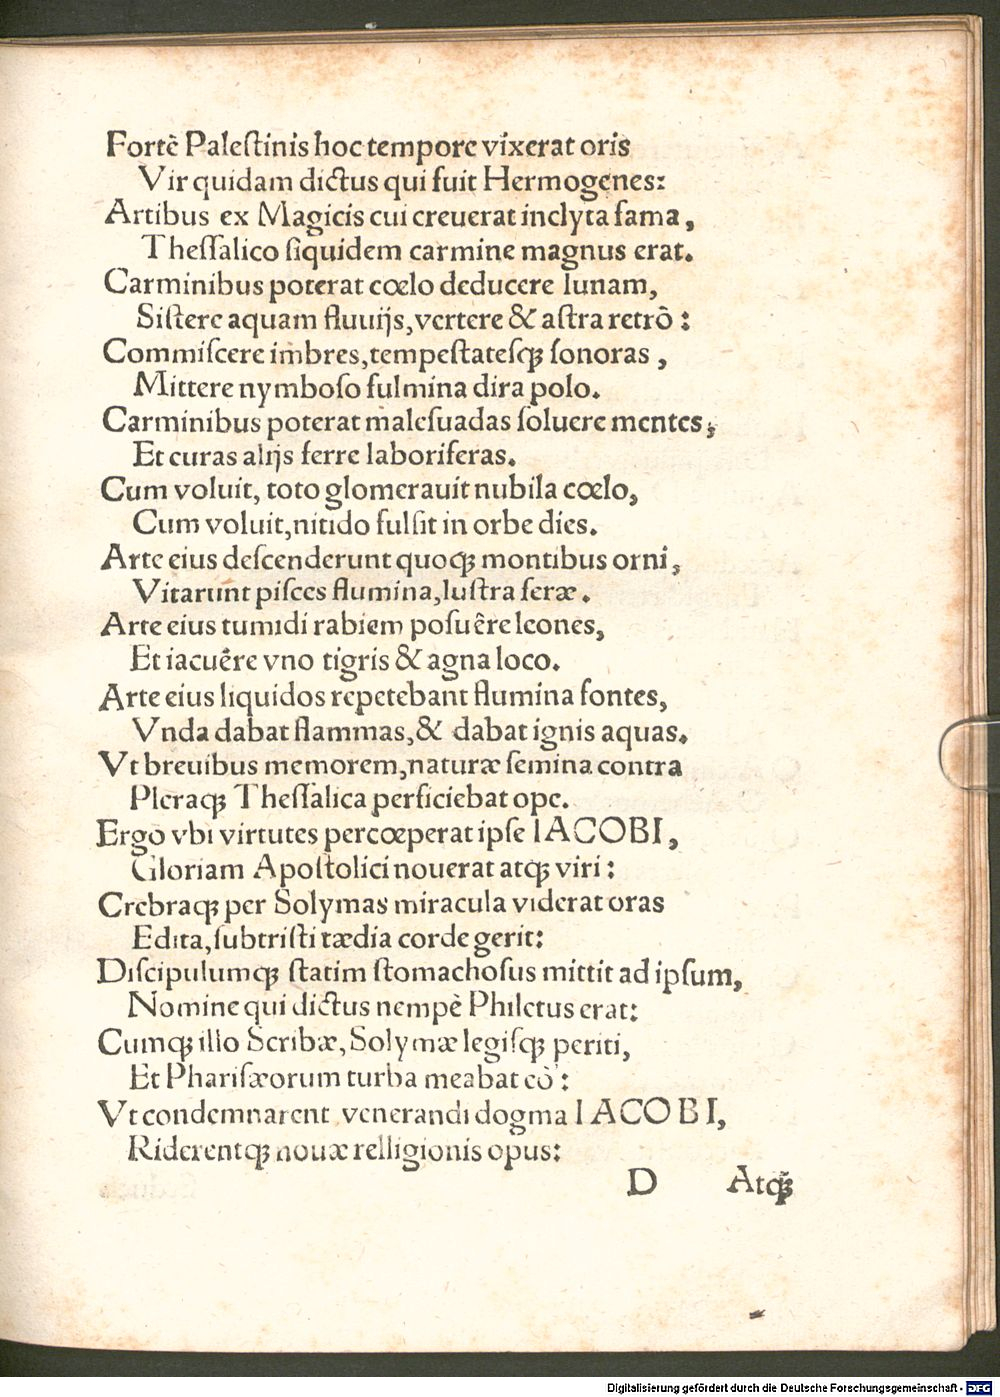 Fortè Paleſtinis hoc tempore vixerat oris
Vir quidam dictus qui fuit Hermogenes:
Artibus ex Magicis cui creuerat inclyta fama,
Theſſalico ſiquidem carmine magnus erat.
Carminibus poterat cœlo deducere lunam,
Siſtere aquam fluuijs, vertere & aſtra retrò:
Commiſcere imbres, tempeſtateſqꝫ ſonoras,
Mittere nymboſo fulmina dira polo.
Carminibus poterat maleſuadas ſoluere mentes;
Et curas alijs ferre laboriferas.
Cum voluit, toto glomerauit nubila cœlo,
Cum voluit, nitido fulſit in orbe dies.
Arte eius deſcenderunt quoqꝫ montibus orni;
Vitarunt piſces flumina, luſtra feræ.
Arte eius tumidi rabiem poſuêre leones,
Et iacuêre vno tigris & agna loco.
Arte eius liquidos repetebant flumina fontes,
Vnda dabat flammas, & dabat ignis aquas.
Vt breuibus memorem, naturæ ſemina contra
Pleraqꝫ Theſſalica perficiebat ope.
Ergo vbi virtutes percœperat ipſe IACOBI,
Gloriam Apoſtolici nouerat atqꝫ viri:
Crebraqꝫ per Solymas miracula viderat oras
Edita, ſubtriſti tædia corde gerit:
Diſcipulumqꝫ ſtatim ſtomachoſus mittit ad ipſum,
Nomine qui dictus nempè Philetus erat:
Cumqꝫ illo Scribæ, Solymæ legiſqꝫ periti,
Et Phariſæorum turba meabat eò:
Vt condemnarent venerandi dogma IACOBI,
Riderentqꝫ nouæ relligionis opus:
D Atqꝫ
Digitalisierung gefördert durch die Deutsche Forschungsgemeinschaft - DFG